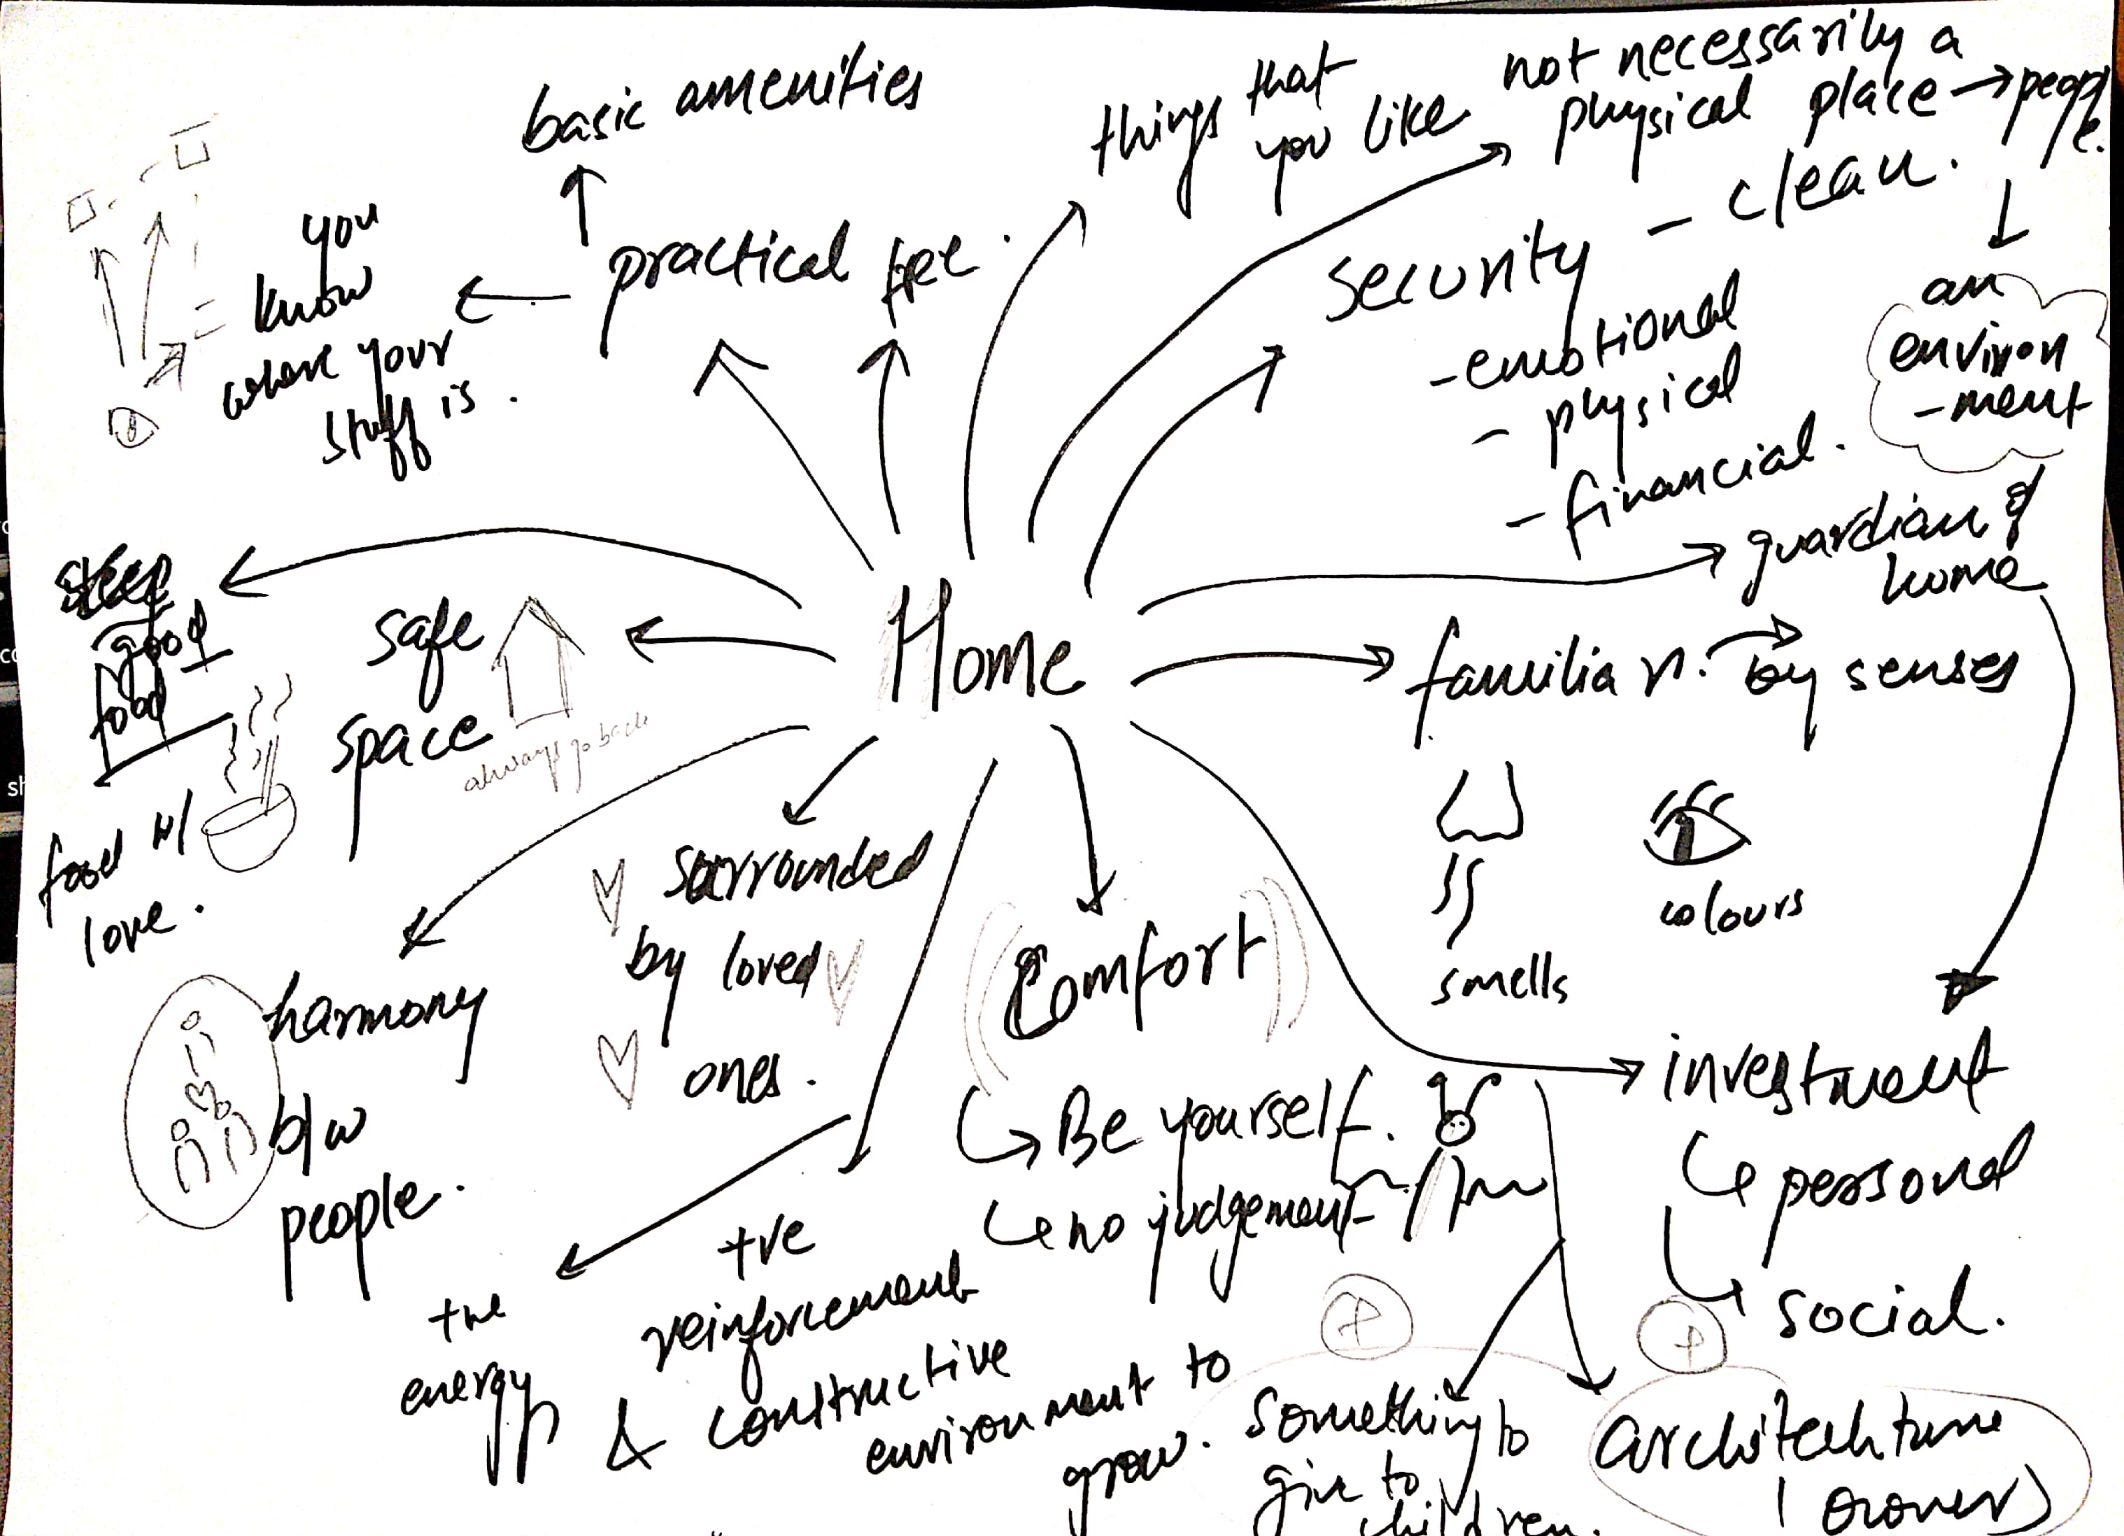 basic amenities
things that
you like
not necessarily a
physical place → people.
you
know
where your
stuff is.
practical
free.
security
- clean.
- emotional
- physical
- financial.
an
environ
-ment
guardian of
home
sleep
good
food
food w/
love.
safe
space
always go back
Home
familiar.
by senses
smells
colours
surrounded
by loved
ones.
harmony
b/w
people.
Comfort
Be yourself.
no judgement
investment
personal
social.
+ve
energy
+ve
reinforcement
& constructive
environment to
grow.
something to
give to
children.
architechture